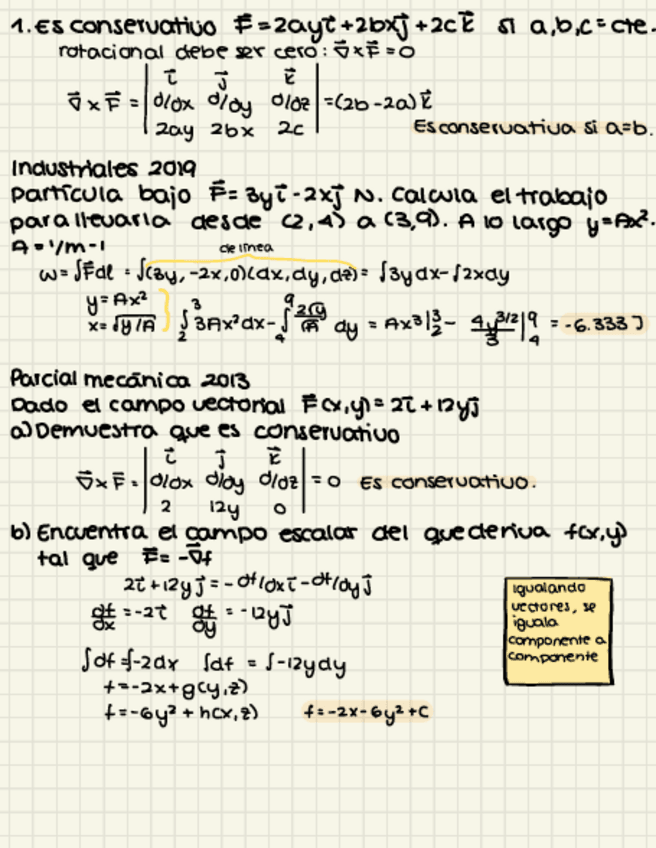 1. Es conservativo F⃗=2ayi⃗+2bxj⃗+2ck⃗ si a,b,c=cte.
rotacional debe ser cero: ∇⃗×F⃗=0
i⃗ j⃗ k⃗
∇⃗×F⃗ = | d/dx d/dy d/dz | =(2b-2a)k⃗
2ay 2bx 2c
Es conservativa si a=b.
Industriales 2019
Partícula bajo F⃗=3yi⃗-2xj⃗ N. Calcula el trabajo
para llevarla desde (2,4) a (3,9). A lo largo y=Ax².
A=1/m-1
de línea
ω=∫F⃗dl = ∫(3y,-2x,0)(dx,dy,dz)= ∫3ydx-∫2xdy
y=Ax²
x=√y/A } ∫₂³ 3Ax²dx-∫₄⁹ 2√y/√A dy = Ax³|₂³ - 4y^3/2/3|₄⁹ = -6.333 J
Parcial mecánica 2013
Dado el campo vectorial F⃗(x,y)=2i⃗+12yj⃗
a) Demuestra que es conservativo
i⃗ j⃗ k⃗
∇⃗×F⃗ = | d/dx d/dy d/dz | =0 Es conservativo.
2 12y 0
b) Encuentra el campo escalar del que deriva f(x,y)
tal que F⃗=-∇⃗f
2i⃗+12yj⃗=-df/dxi⃗-df/dyj⃗
df/dx=-2i⃗ df/dy=-12yj⃗
igualando
vectores, se
iguala
componente a
componente
∫df=∫-2dx ∫df = ∫-12ydy
f=-2x+g(y,z)
f=-6y²+h(x,z) f=-2x-6y²+C